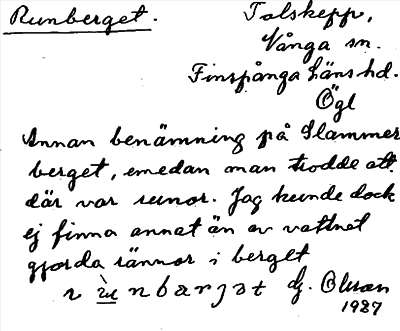 Runberget.
Tolskepp,
Vånga sn.
Finspånga läns hd.
Ögl
Annan benämning på Hammer
berget, emedan man trodde att
där var runor. Jag kunde dock
ej finna annat än av vattnet
gjorda rännor i berget
dj. Olsson
1927